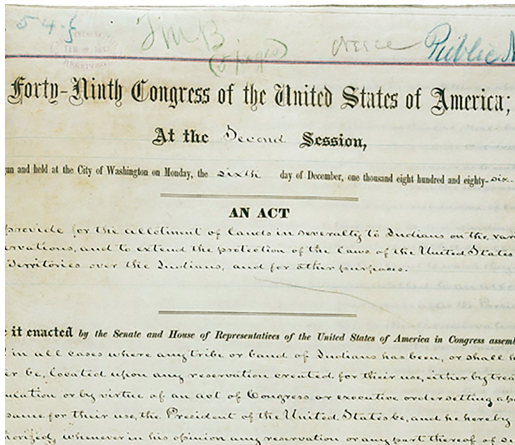 54-3
JMB
(5 pages)
Public N
Forty-Ninth Congress of the United States of America;
At the Second Session,
un and held at the City of Washington on Monday, the sixth day of December, one thousand eight hundred and eighty-six.
AN ACT
provide for the allotment of lands in severalty to Indians on the var
ervations, and to extend the protection of the laws of the United States
Territories over the Indians, and for other purposes.
it enacted by the Senate and House of Representatives of the United States of America in Congress assemb
in all cases where any tribe or band of Indians has been, or shall h
er be, located upon any reservation created for their use, either by trea
ulation or by virtue of an act of Congress or executive order setting apa
same for their use, the President of the United States be, and he hereby
horized, whenever in his opinion any reservation or any part thereof of s